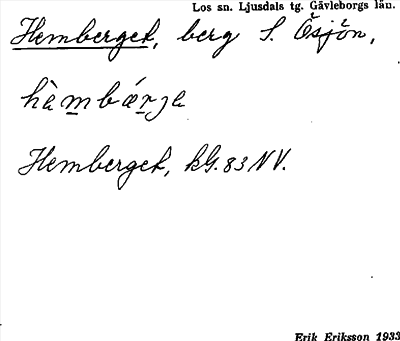 Los sn. Ljusdals tg. Gävleborgs län.
Hemberget, berg S. Ösjön,
hèmbǽrje
Hemberget, kG. 83 NV.
Erik Eriksson 1933